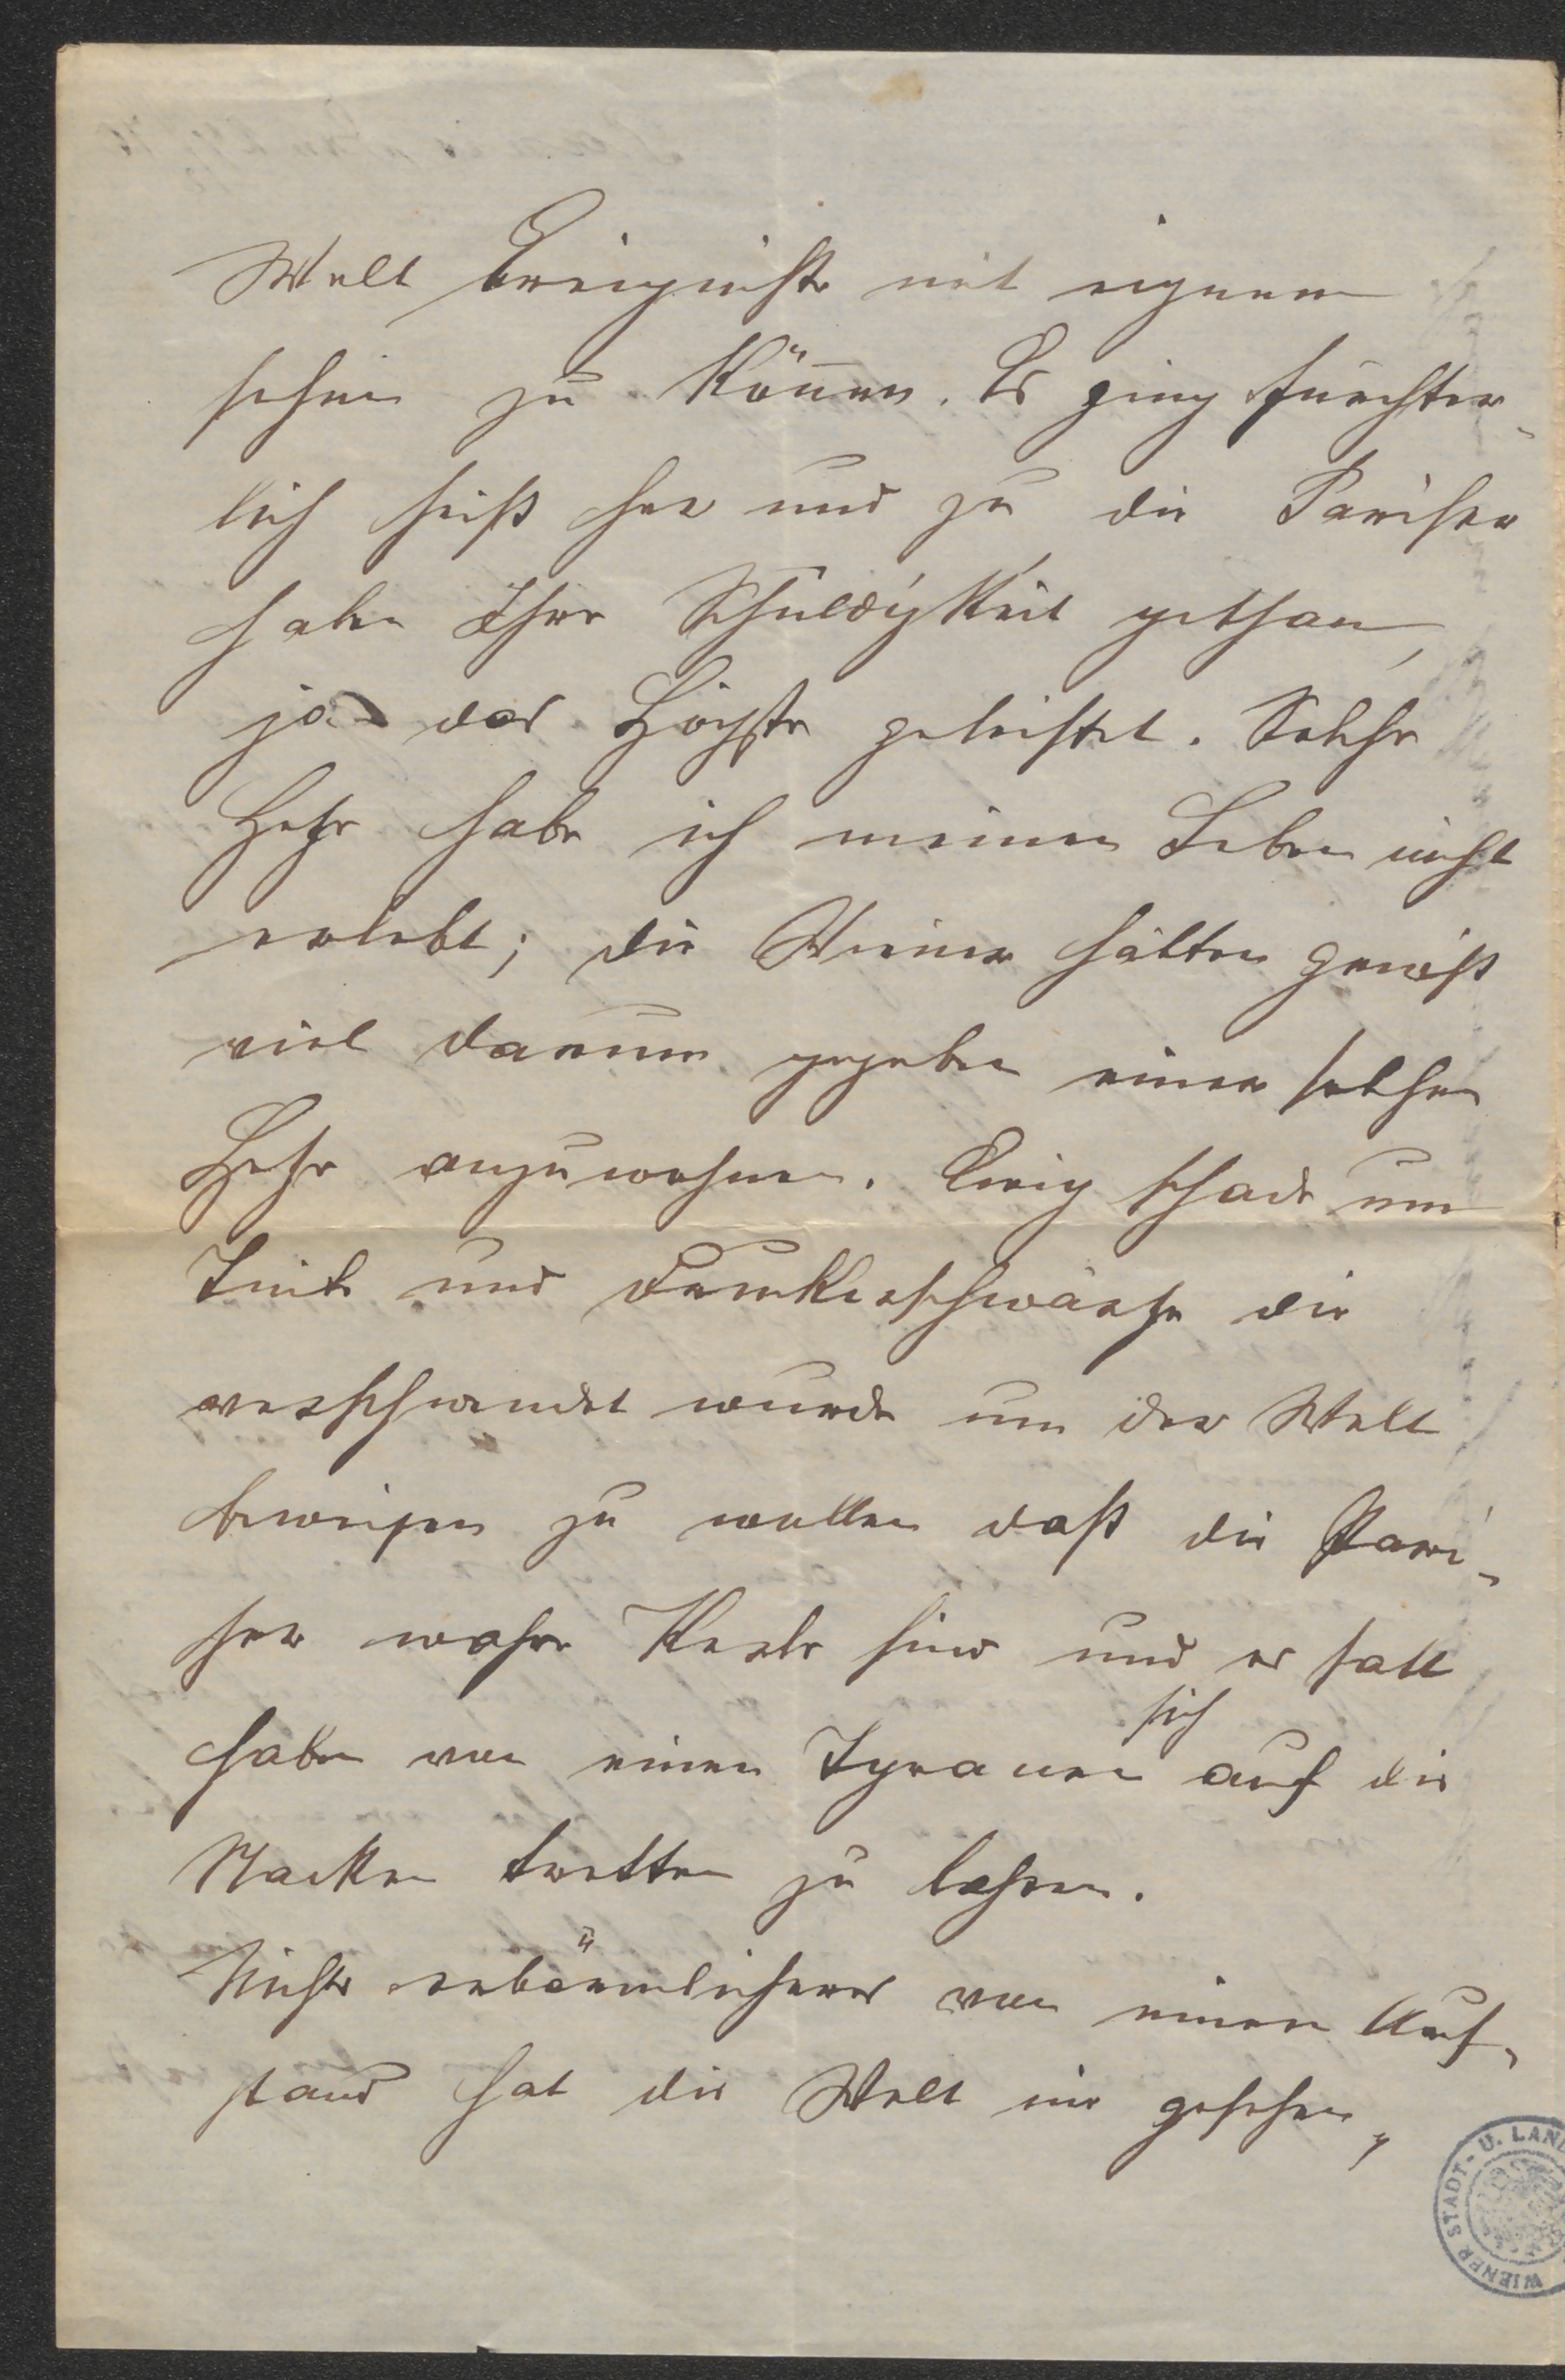 Welt Ereigniße mit eignem
sehen zu können. Es ging fürchter-
lich heiß her und zu die Pariser
haben Ihre Schuldigkeit gethan,
ja das Höchste geleistet. Solche
Hetze habe ich meinen Leben nicht
erlebt; die Wiener hätten gewiß
viel darum gegeben einer solchen
Hetze anzuwohnen. Ewig schade um
Tinte und Druckerschwärze die
verschwendet wurde um der Welt
beweisen zu wollen daß die Pari-
ser wahre Kerle sind und es satt
haben von einen Tyranen sich auf die
Nacken tretten zu laßen.
Nichts erbärmlicheres von einen Auf-
stand hat die Welt nie gesehen,
WIENER STADT- U. LAND